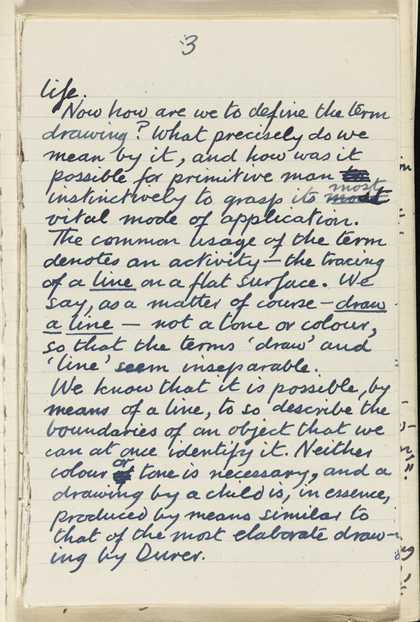 3
life.
Now how are we to define the term
drawing? What precisely do we
mean by it, and how was it
possible for primitive man
instinctively to grasp its most
vital mode of application.
The common usage of the term
denotes an activity — the tracing
of a line on a flat surface. We
say, as a matter of course — draw
a line — not a tone or colour,
so that the terms 'draw' and
'line' seem inseparable.
We know that it is possible, by
means of a line, to so describe the
boundaries of an object that we
can at once identify it. Neither
colour or tone is necessary, and a
drawing by a child is, in essence,
produced by means similar to
that of the most elaborate draw-
ing by Durer.